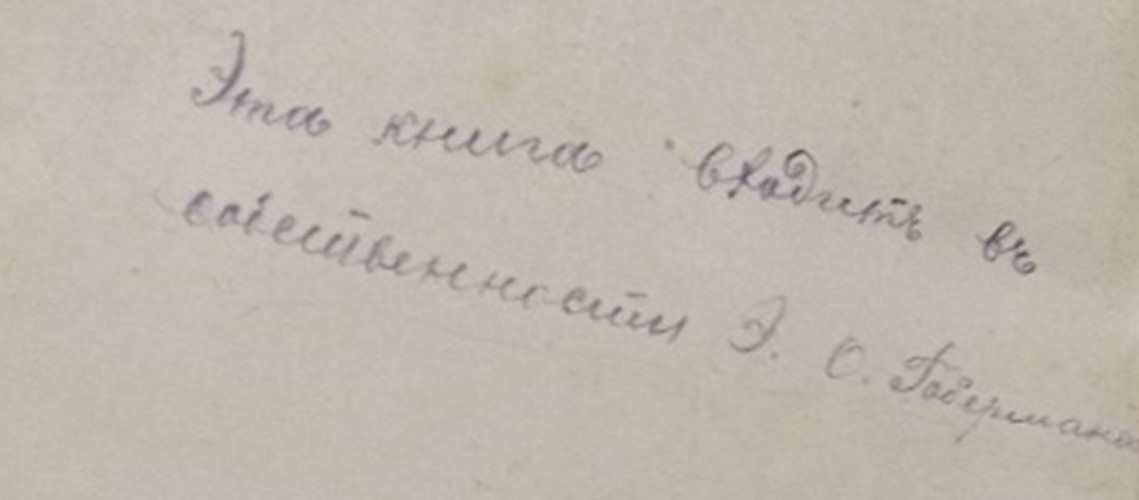 Эта книга входитъ въ
собственности Э. О. Гобермана